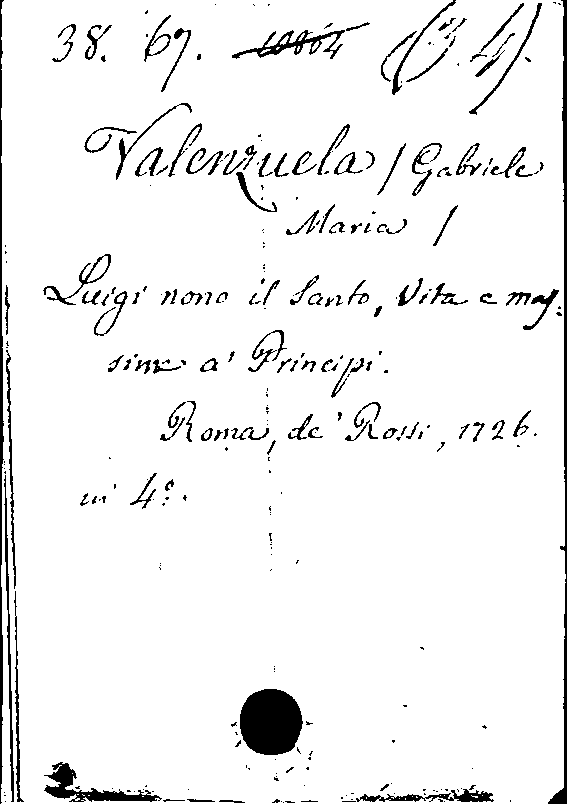 38. 67. 10864 (3.4).
Valenzuela / Gabriele
Maria /
Luigi nono il Santo, Vita e mas:
sime a' Principi.
Roma, de' Rossi, 1726.
in 4º.